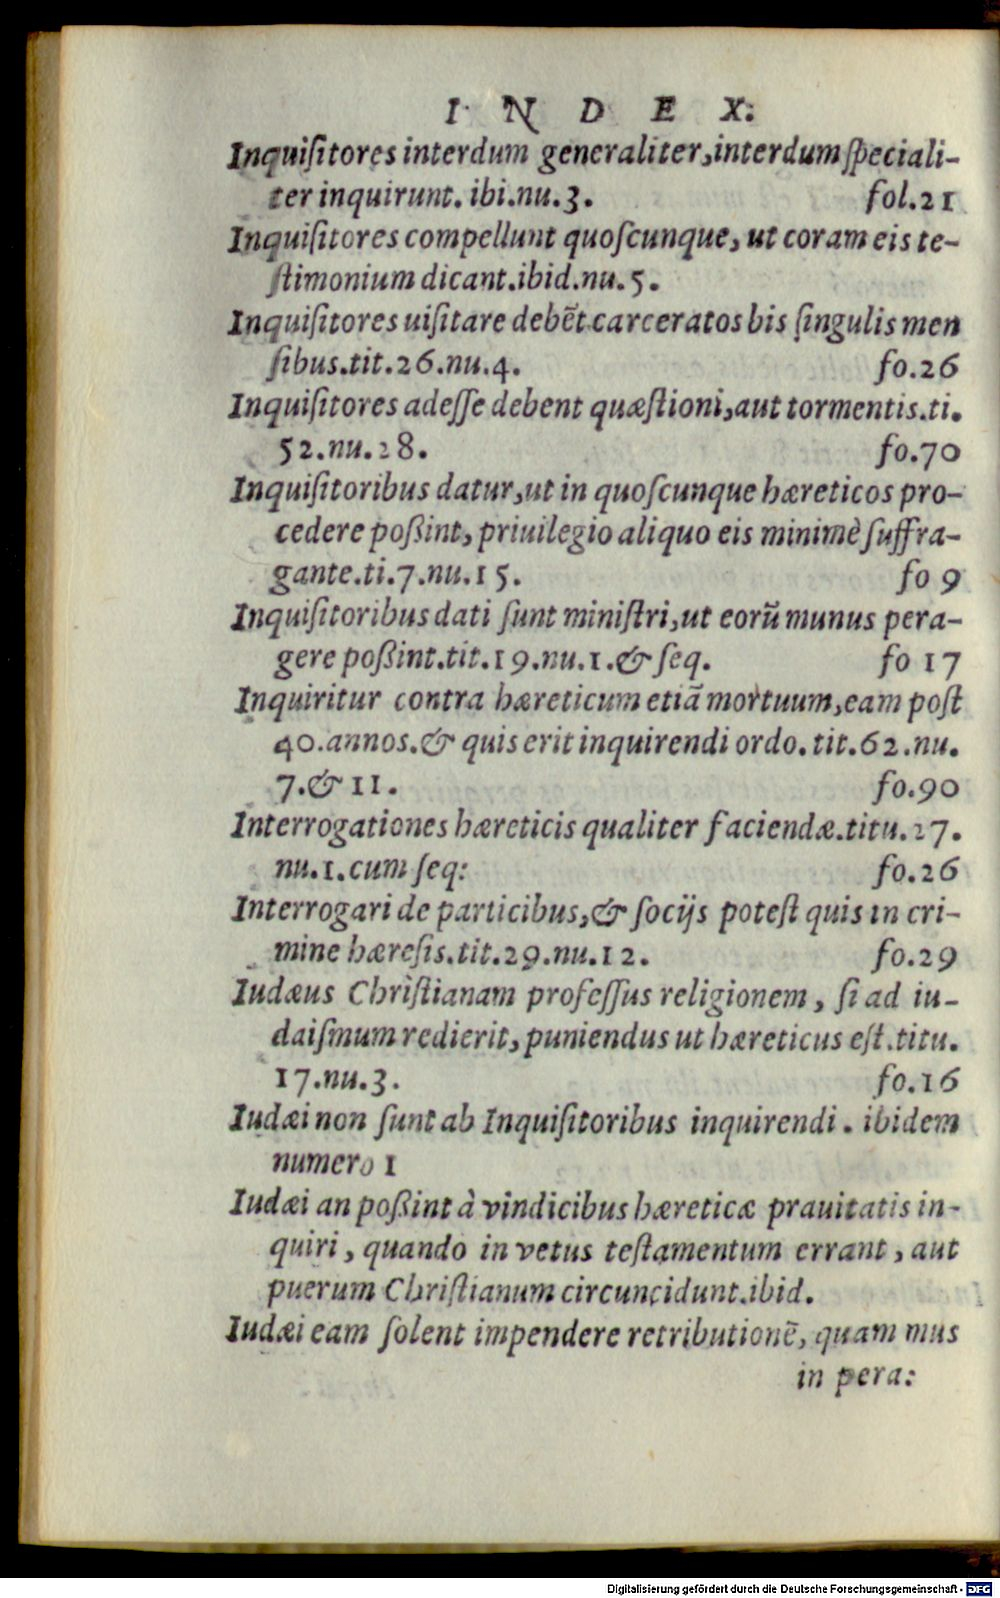 INDEX.
Inquiſitores interdum generaliter, interdum ſpeciali-
ter inquirunt. ibi.nu.3. fol.21
Inquiſitores compellunt quoſcunque, ut coram eis te-
ſtimonium dicant.ibid.nu.5.
Inquiſitores uiſitare debēt carceratos bis ſingulis men
ſibus.tit.26.nu.4. fo.26
Inquiſitores adeſſe debent quæſtioni, aut tormentis.ti.
52.nu.28. fo.70
Inquiſitoribus datur, ut in quoſcunque hæreticos pro-
cedere poßint, priuilegio aliquo eis minimè ſuffra-
gante.ti.7.nu.15. fo 9
Inquiſitoribus dati ſunt miniſtri, ut eorū munus pera-
gere poßint.tit.19.nu.1.& ſeq. fo 17
Inquiritur contra hæreticum etiā mortuum, eam poſt
40.annos.& quis erit inquirendi ordo. tit.62.nu.
7.& 11. fo.90
Interrogationes hæreticis qualiter faciendæ.titu.27.
nu.1.cum ſeq: fo.26
Interrogari de particibus, & ſocijs poteſt quis in cri-
mine hæreſis.tit.29.nu.12. fo.29
Iudæus Chriſtianam profeſſus religionem, ſi ad iu-
daiſmum redierit, puniendus ut hæreticus eſt.titu.
17.nu.3. fo.16
Iudæi non ſunt ab Inquiſitoribus inquirendi. ibidem
numero 1
Iudæi an poßint à vindicibus hæreticæ prauitatis in-
quiri, quando in vetus teſtamentum errant, aut
puerum Chriſtianum circuncidunt.ibid.
Iudæi eam ſolent impendere retributionē, quam mus
in pera:
Digitalisierung gefördert durch die Deutsche Forschungsgemeinschaft - DFG